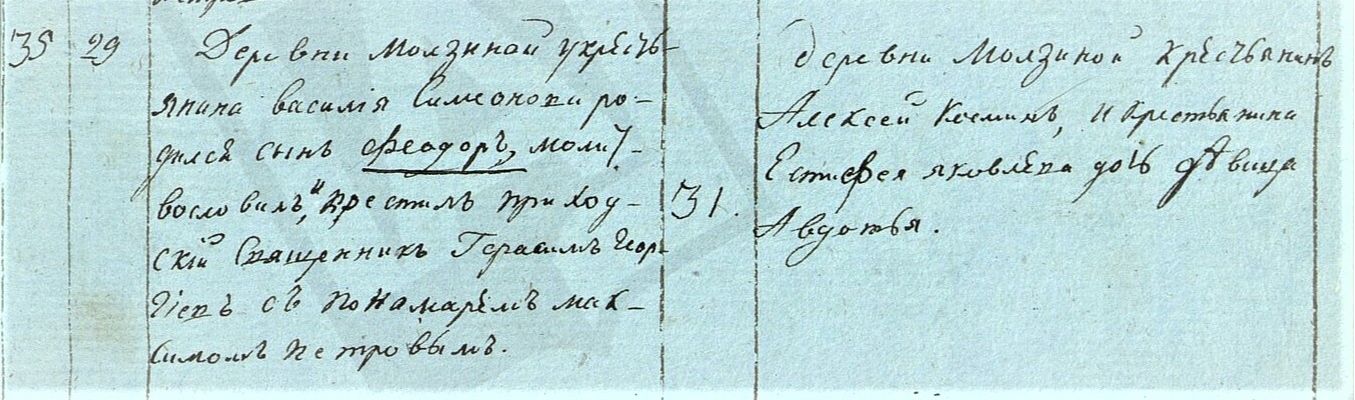 35 29 Деревни Молзиной укресть-
янина василія Симеонова ро-
дился сынъ Феодоръ, молит-
вословилъ, и крестилъ приход-
скій Священникъ Герасимъ Геор-
гіевъ съ пономарёмъ мак-
симомъ петровымъ.
31.
деревни Молзиной крестьянинъ
Алексей Косминъ, и крестьянина
Естифея яковлева дочь дѣвица
Авдотья.